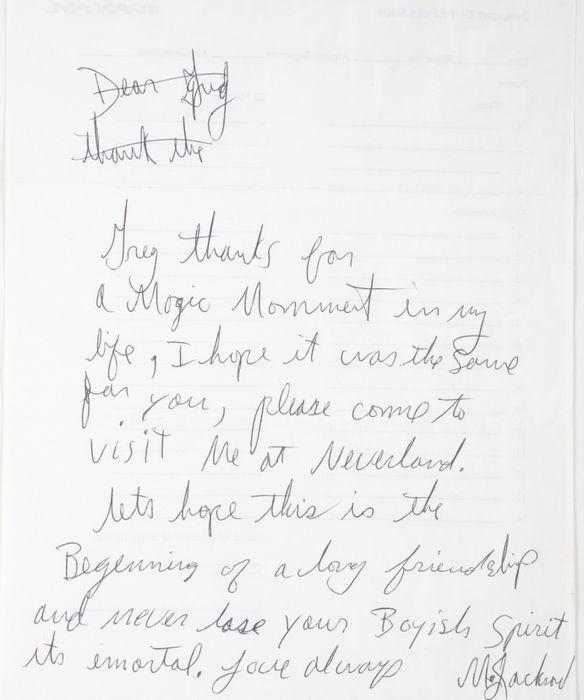 Dear Greg
thank the
Greg thanks for
a Magic Momment in my
life, I hope it was the same
for you, please come to
visit Me at Neverland.
lets hope this is the
Begenning of a long friendship
and never lose your Boyish Spirit
its imortal. Love always MJackson